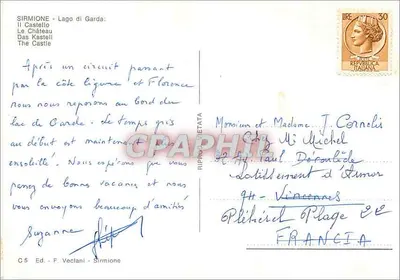 SIRMIONE - Lago di Garda:
Il Castello
Le Château
Das Kastell
The Castle
Après un circuit passant
par la côte ligure et Florence
nous nous reposons au bord du
lac de Garde - le temps gris
au début est maintenant
ensoleillé. Nous espérons que vous
passez de bonnes vacances et nous
vous envoyons beaucoup d'amitiés
Suzanne
G5 Ed. - F. Vectani - Sirmione
RIPROD. VIETATA
CPARPHIL
LIRE 30
REPUBBLICA
ITALIANA
Monsieur et Madame J. Cornelis
Chez Mr Michel
Av. Paul Deroulede
Lotissement d'Armor
94 - Vincennes
Pléhérel Plage 22
FRANCIA